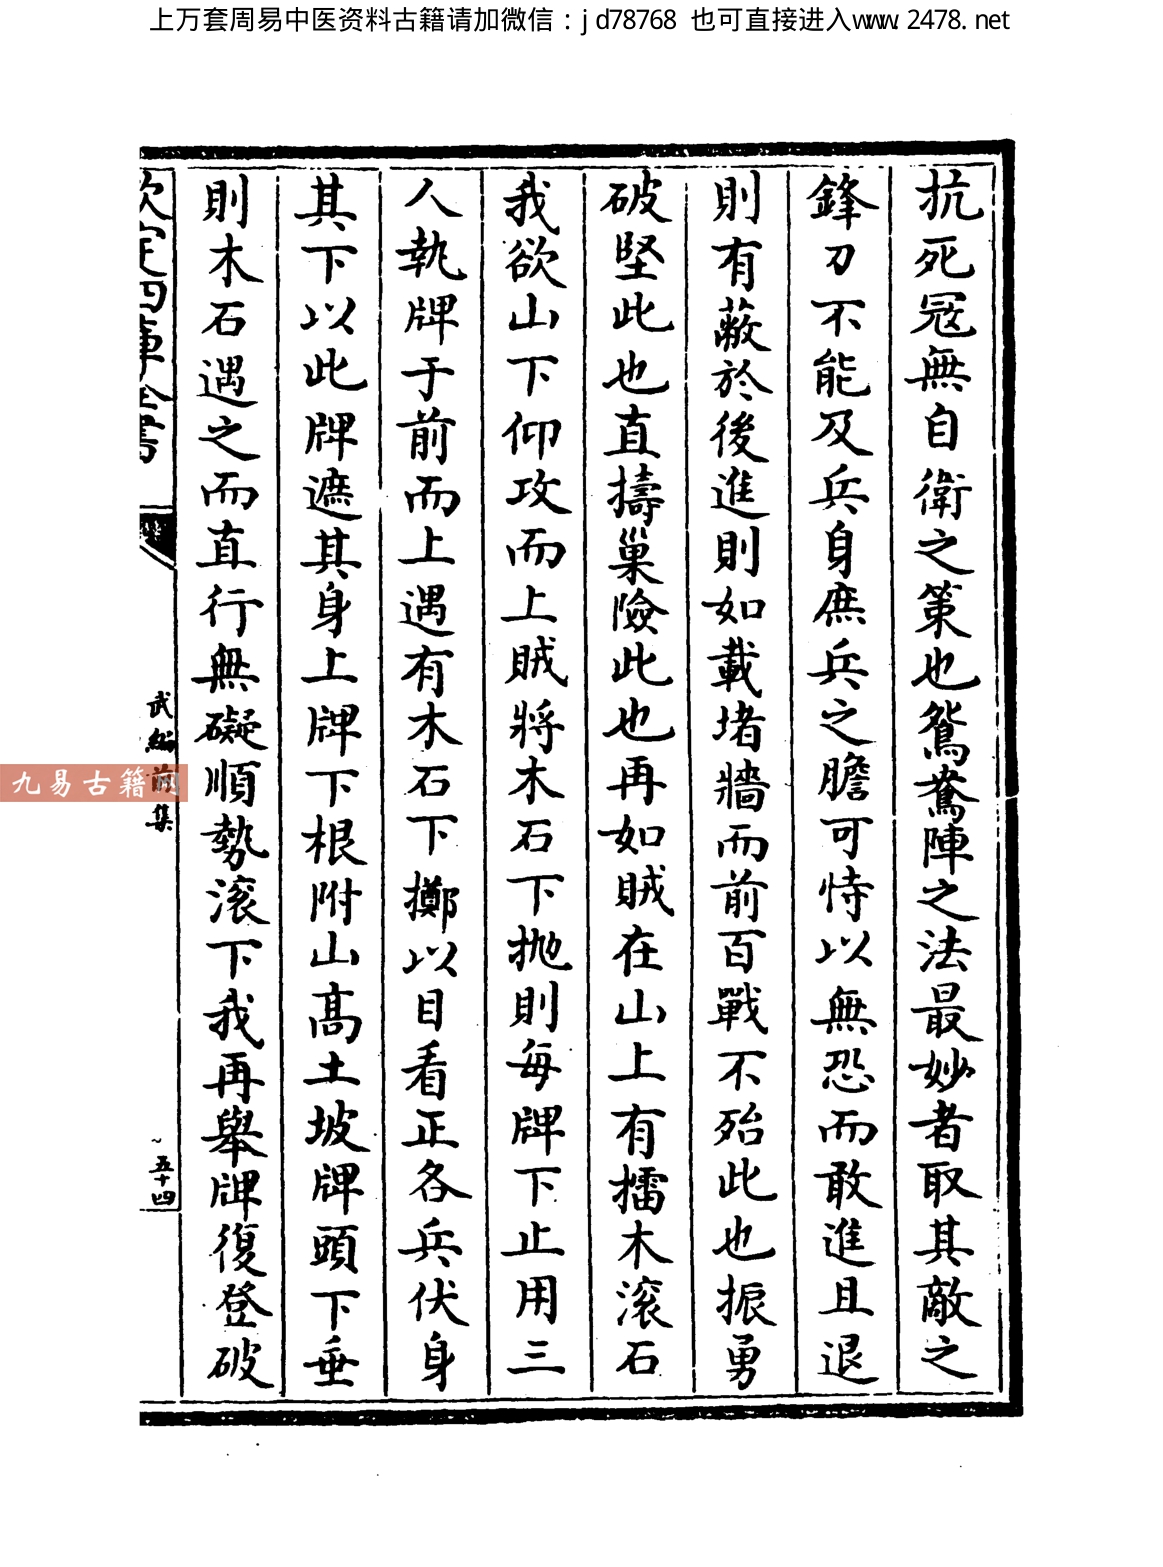 上万套周易中医资料古籍请加微信：jd78768 也可直接进入www.2478.net
抗死冦無自衛之策也鴛鴦陣之法最妙者取其敵之
鋒刀不能及兵身庶兵之膽可恃以無恐而敢進且退
則有蔽於後進則如載堵牆而前百戰不殆此也振勇
破堅此也直擣巢險此也再如賊在山上有擂木滚石
我欲山下仰攻而上賊將木石下抛則每牌下止用三
人執牌于前而上遇有木石下擲以目看正各兵伏身
其下以此牌遮其身上牌下根附山高土坡牌頭下垂
則木石遇之而直行無礙順勢滚下我再舉牌復登破
欽定四庫全書
武編前集
五十四
九易古籍网